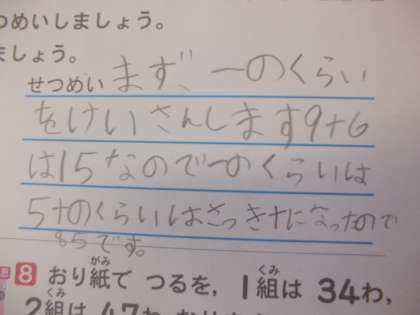 つめいしましょう。
ましょう。
せつめい まず、一のくらい
をけいさんします9+6
は15なので一のくらいは
5十のくらいはさっき十になったので
85です。
8 おり紙で つるを, 1組は 34わ,
がみ くみ
くみ
2組は 47わ